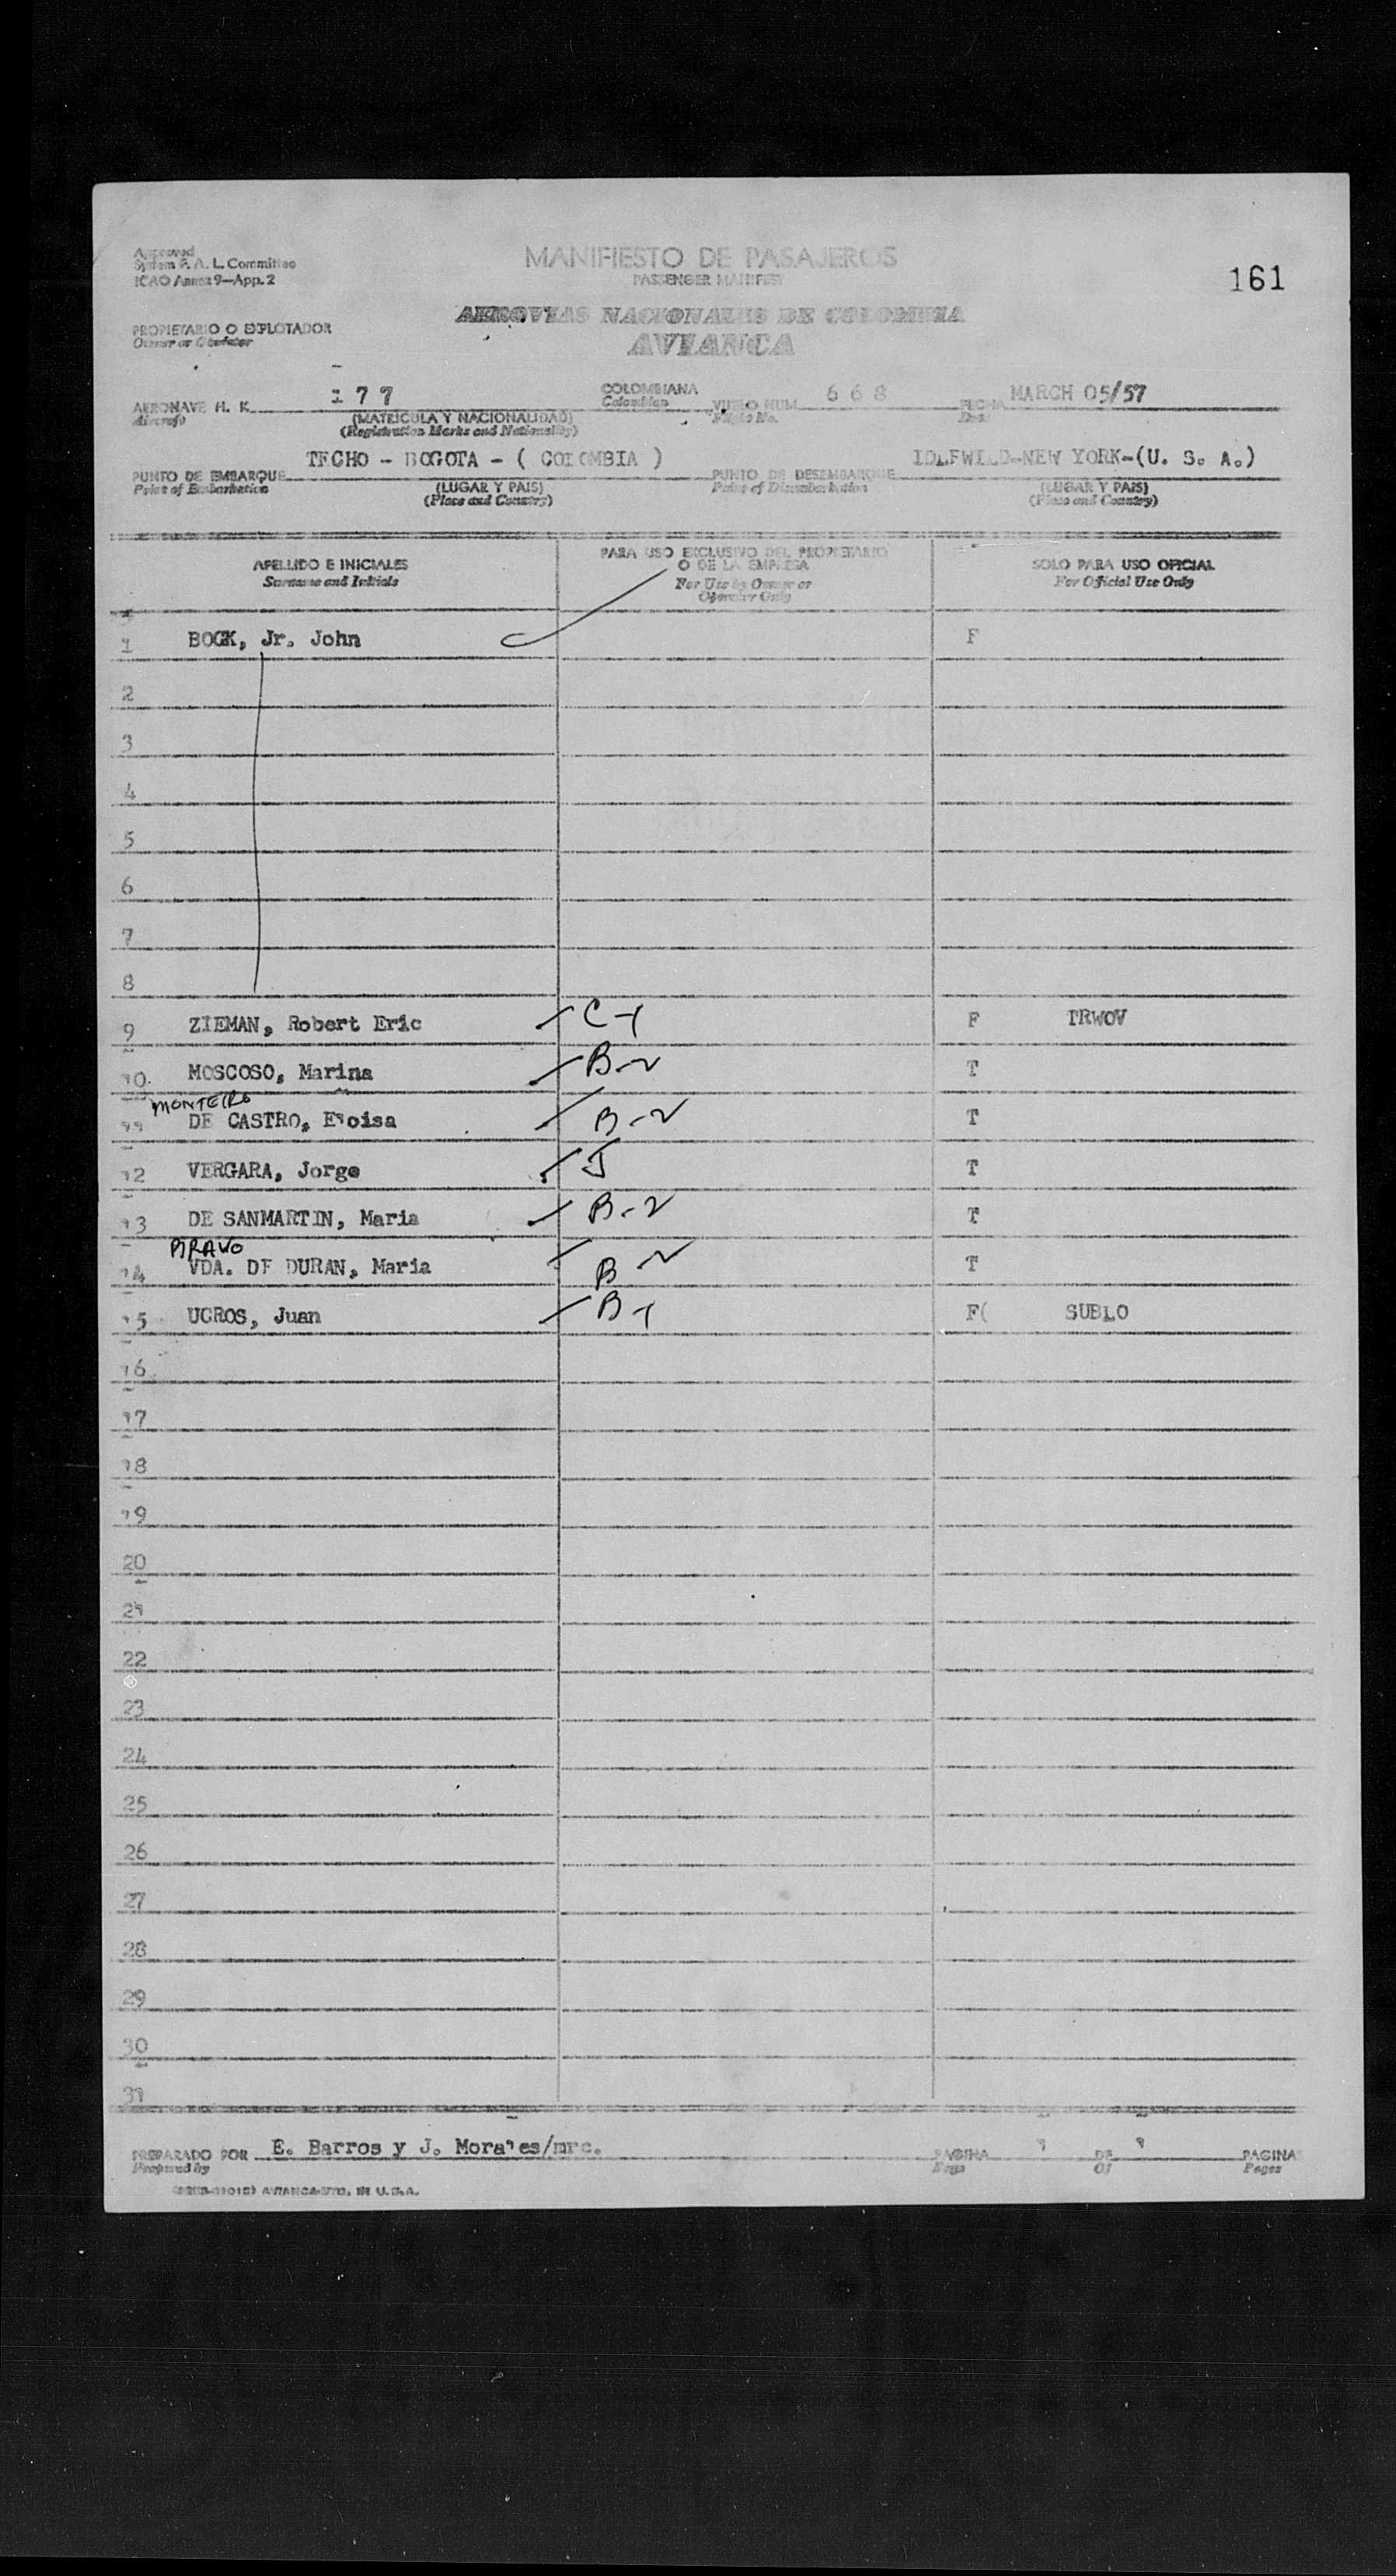 Approved
System F. A. L. Committee
ICAO Annex 9—App. 2
MANIFIESTO DE PASAJEROS
PASSENGER MANIFEST
161
AEROVIAS NACIONALES DE COLOMBIA
AVIANCA
PROPIETARIO O EXPLOTADOR
Owner or Operator
AERONAVE H. K. 177 COLOMBIANA VUELO NUM. 668 FECHA MARCH 05/57
Aircraft (MATRICULA Y NACIONALIDAD) Colombian Flight No. Date
(Registration Marks and Nationality)
PUNTO DE EMBARQUE TECHO - BOGOTA - ( COLOMBIA ) PUNTO DE DESEMBARQUE IDLEWILD-NEW YORK-(U. S. A.)
Point of Embarkation (LUGAR Y PAIS) Point of Disembarkation (LUGAR Y PAIS)
(Place and Country) (Place and Country)
APELLIDO E INICIALES
Surname and Initials
PARA USO EXCLUSIVO DEL PROPIETARIO
O DE LA EMPRESA
For Use by Owner or
Operator Only
SOLO PARA USO OFICIAL
For Official Use Only
1 BOCK, Jr. John F
2
3
4
5
6
7
8
9 ZIEMAN, Robert Eric C-1 F TRWOV
10 MOSCOSO, Marina B-2 T
MONTEIRO
11 DE CASTRO, Eloisa B-2 T
12 VERGARA, Jorge J T
13 DE SANMARTIN, Maria B-2 T
BRAVO
14 VDA. DE DURAN, Maria B-2 T
15 UCROS, Juan B-1 F( SUBLO
16
17
18
19
20
21
22
23
24
25
26
27
28
29
30
31
PREPARADO POR E. Barros y J. Morales/mrc. PAGINA 1 DE 1 PAGINA
Prepared by Page Of Pages
AVIANCA-LTD. IN U.S.A.